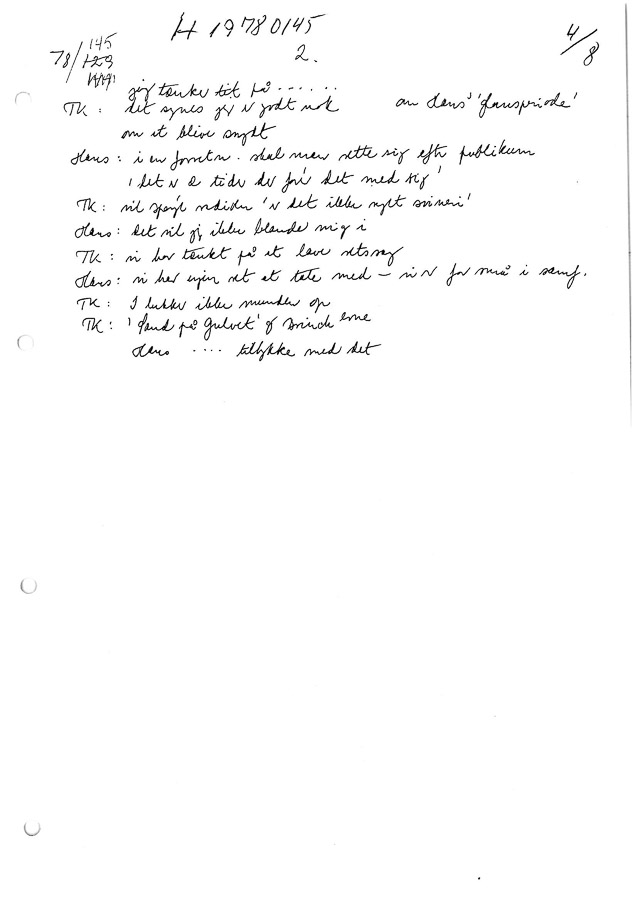 H 19780145
4/8
78/145
2.
jeg tænker tit på ......
TK: det synes jeg er godt nok om Hans'
om at blive snydt
Hans: i en forretn. skal man rette sig efter publikum
det er tider der
TK: vil spørge 'er det ikke noget svineri'
Hans: det vil jeg ikke blande mig i
TK: vi har tænkt på at lave retssag
Hans: vi har ingen ret at tale med – vi er for små i samf.
TK: I lukker ikke munden op
TK: 'Sand på Gulvet' og
Hans .... tillykke med det